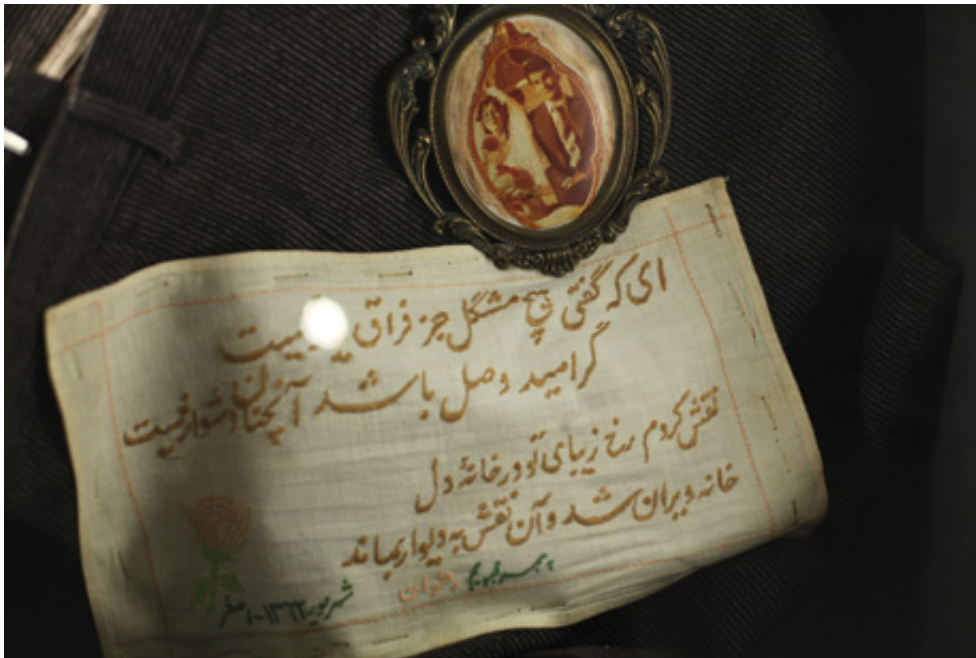 ای که گفتی هیچ مشگل جز فراق یار نیست
گر امید وصل باشد آنچنان دشوار نیست
نقش کردم رخ زیبای تو در خانۀ دل
خانه ویران شد و آن نقش به دیوار بماند
به همسر خوبم اخوان
شهریور ۱۳۶۲-۱۰ صفر